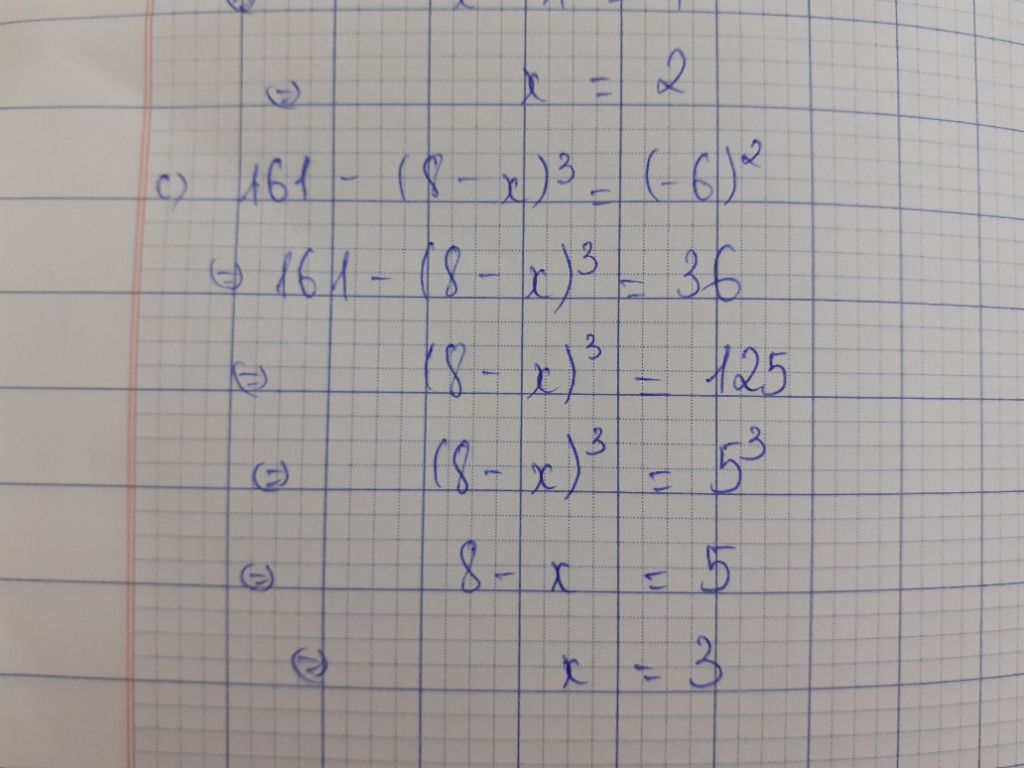 ⇔ x = 2
c) 161 - (8 - x)³ = (-6)²
⇔ 161 - (8 - x)³ = 36
⇔ (8 - x)³ = 125
⇔ (8 - x)³ = 5³
⇔ 8 - x = 5
⇔ x = 3